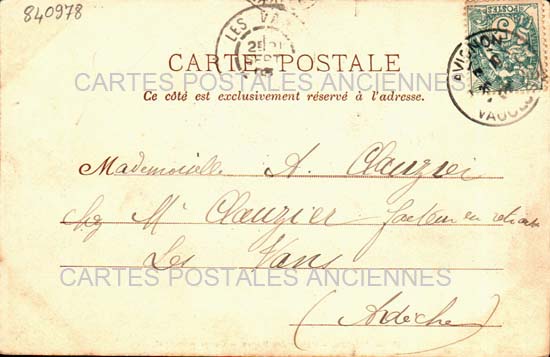 840978
LES VA
25
AVIGNON
VAUCLUSE
POSTES
CARTE POSTALE
CARTES POSTALES ANCIENNES
Ce côté est exclusivement réservé à l'adresse.
Mademoiselle A. Clauzier
chez Mr Clauzier facteur en retraite
Les Vans
CARTES POSTALES ANCIENNES
(Ardèche)